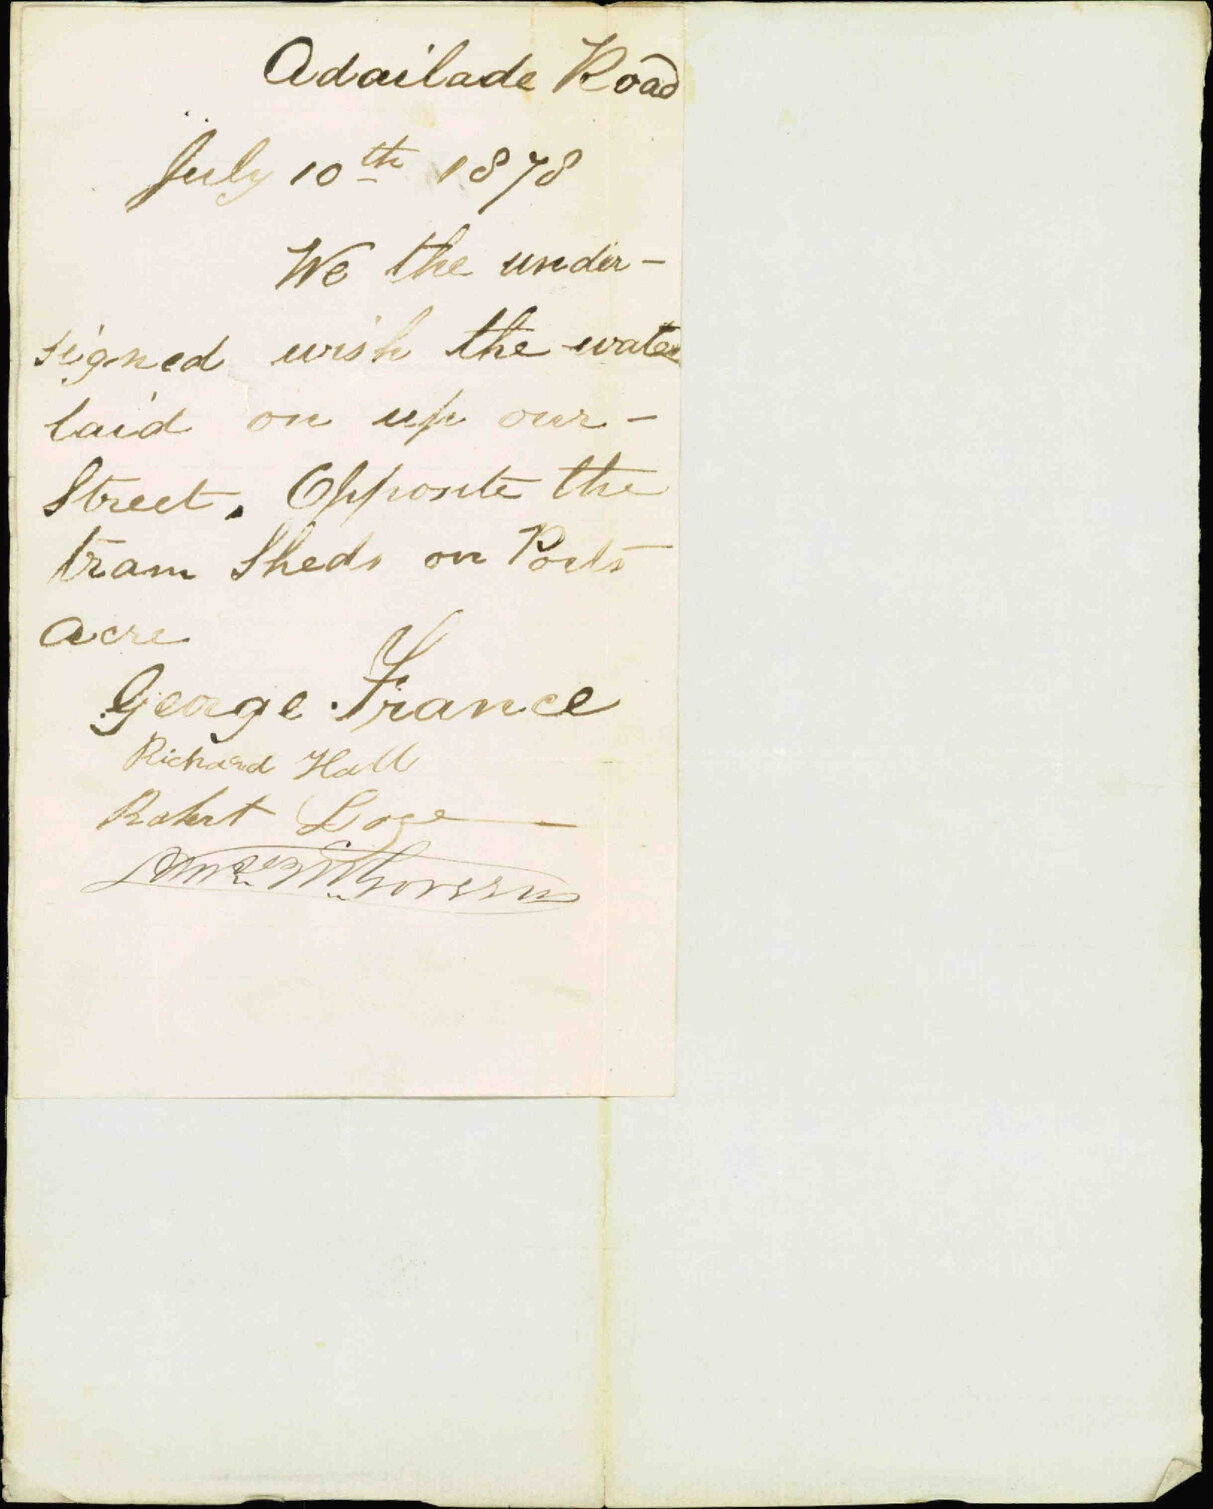 Adailade Road
July 10th 1878
We the under-
signed wish the water
laid on up our-
Street. Opposite the
tram Sheds on Posts
acre
George France
Richard Hall
Robert